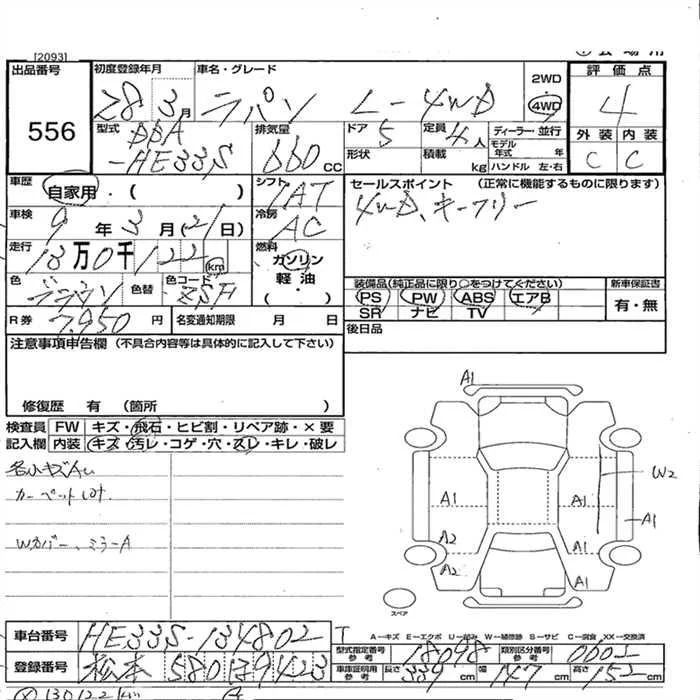 [2093]
出品番号
556
初度登録年月
28 3月
車名・グレード
ラパン L-4WD
2WD
4WD
評価点
4
外装 内装
C C
型式
DBA
-HE33S
排気量
660 CC
ドア 5
形状
定員 4人
積載 kg
ディーラー・並行
モデル年式 年
ハンドル 左・右
車歴
自家用・( )
シフト
IAT
セールスポイント (正常に機能するものに限ります)
4WD、キーフリー
車検
9年3月(21)日
冷房
AC
走行
13万0千122 km
燃料
ガソリン
軽油
・( )
色
ブラウン
色替
色コード
装備品(純正品に限り○をつけてください)
PS PW ABS エアB
SR ナビ TV
新車保証書
有・無
R券 7,950円
名変通知期限 月 日
後日品
注意事項申告欄 (不具合内容等は具体的に記入して下さい)
修復歴 有 (箇所 )
検査員
記入欄
FW キズ・飛石・ヒビ割・リペア跡・×要
内装 キズ・汚レ・コゲ・穴・スレ・キレ・破レ
カーペット
Wカバー、ミラーA
A1
W2
A1
A1
A1
A2
A1
A2
A1
スペア
A-キズ E-エクボ U-凹み W-補修跡 S-サビ C-腐食 XX-交換済
車台番号 HE33S-134802
登録番号 松本 580 139 423
型式指定番号
参考
18048
類別区分番号
参考
0602
車庫証明用
参考
長さ 339 cm
幅 147 cm
高さ 152 cm
130122 km